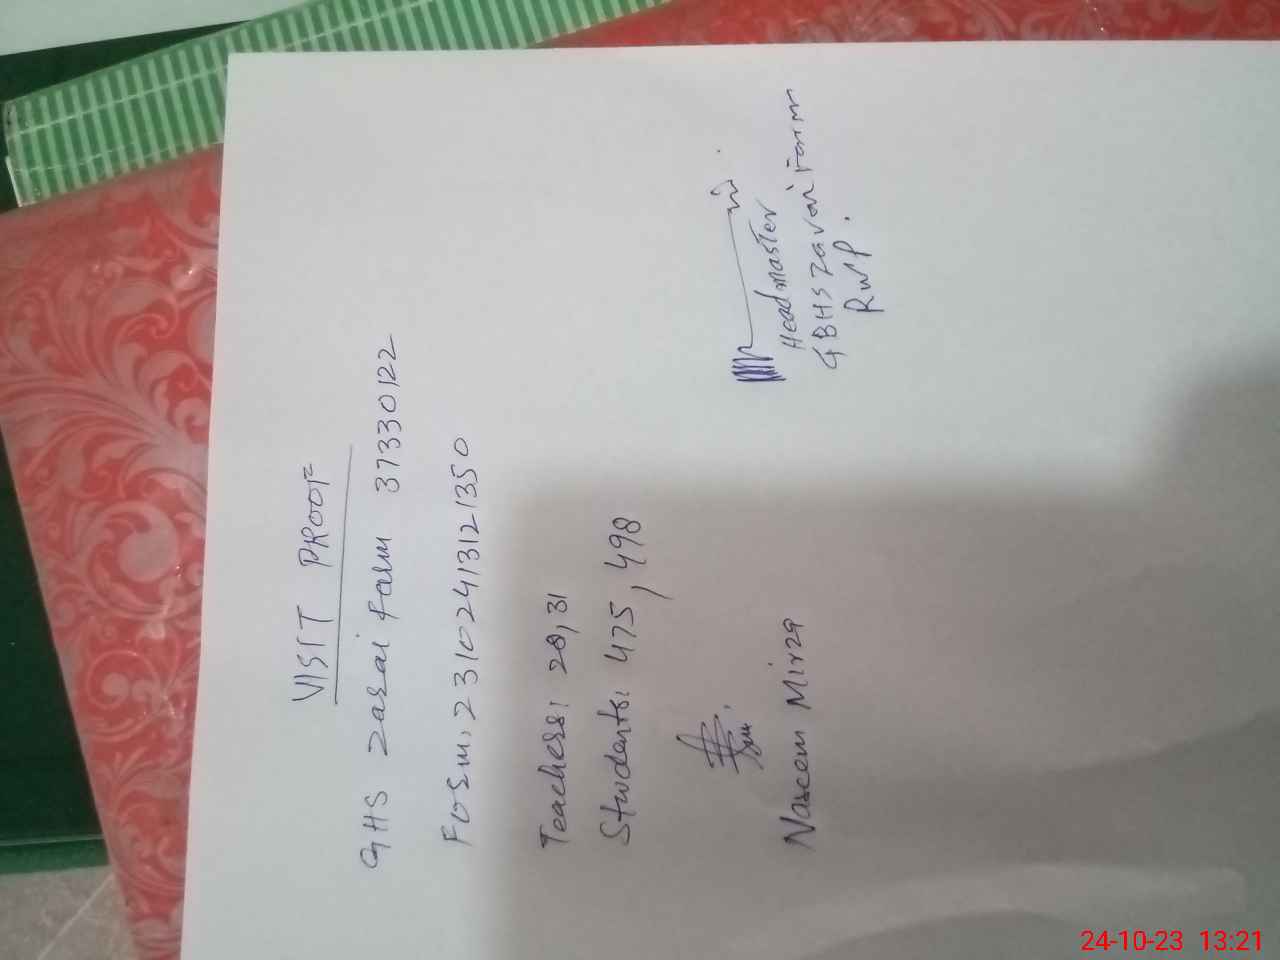 VISIT PROOF
GHS Zarai farm 37330122
Form: 23102413121350
Teachers: 28, 31
Students: 475, 498
Naseem Mirza
Headmaster
GBHS Zarai Farm
RWP.
24-10-23 13:21